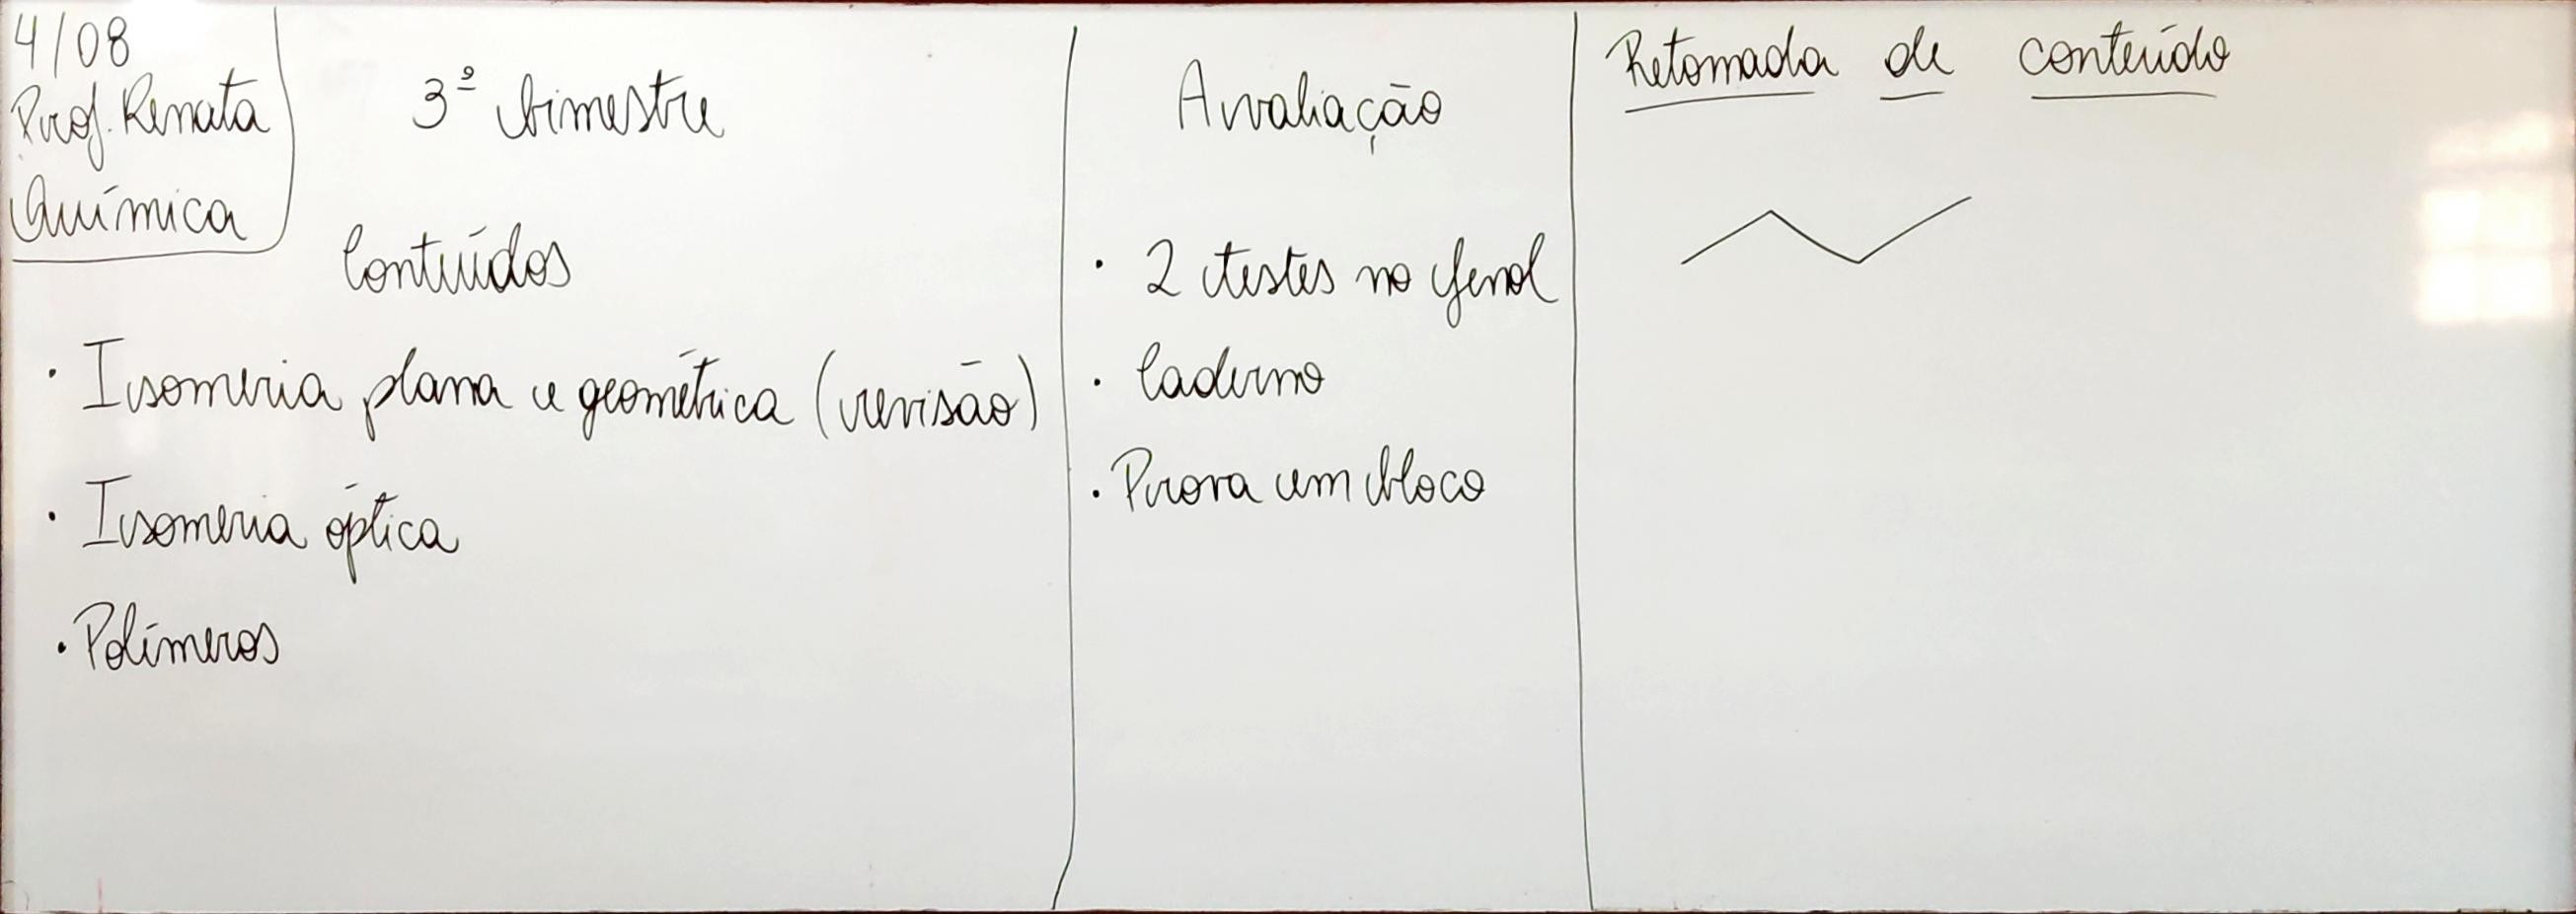 4/08
Prof. Renata
Química
3º bimestre
Conteúdos
· Isomeria plana e geométrica (revisão)
· Isomeria óptica
· Polímeros
Avaliação
· 2 testes no fenol
· Caderno
· Prova em bloco
Retomada de conteúdo